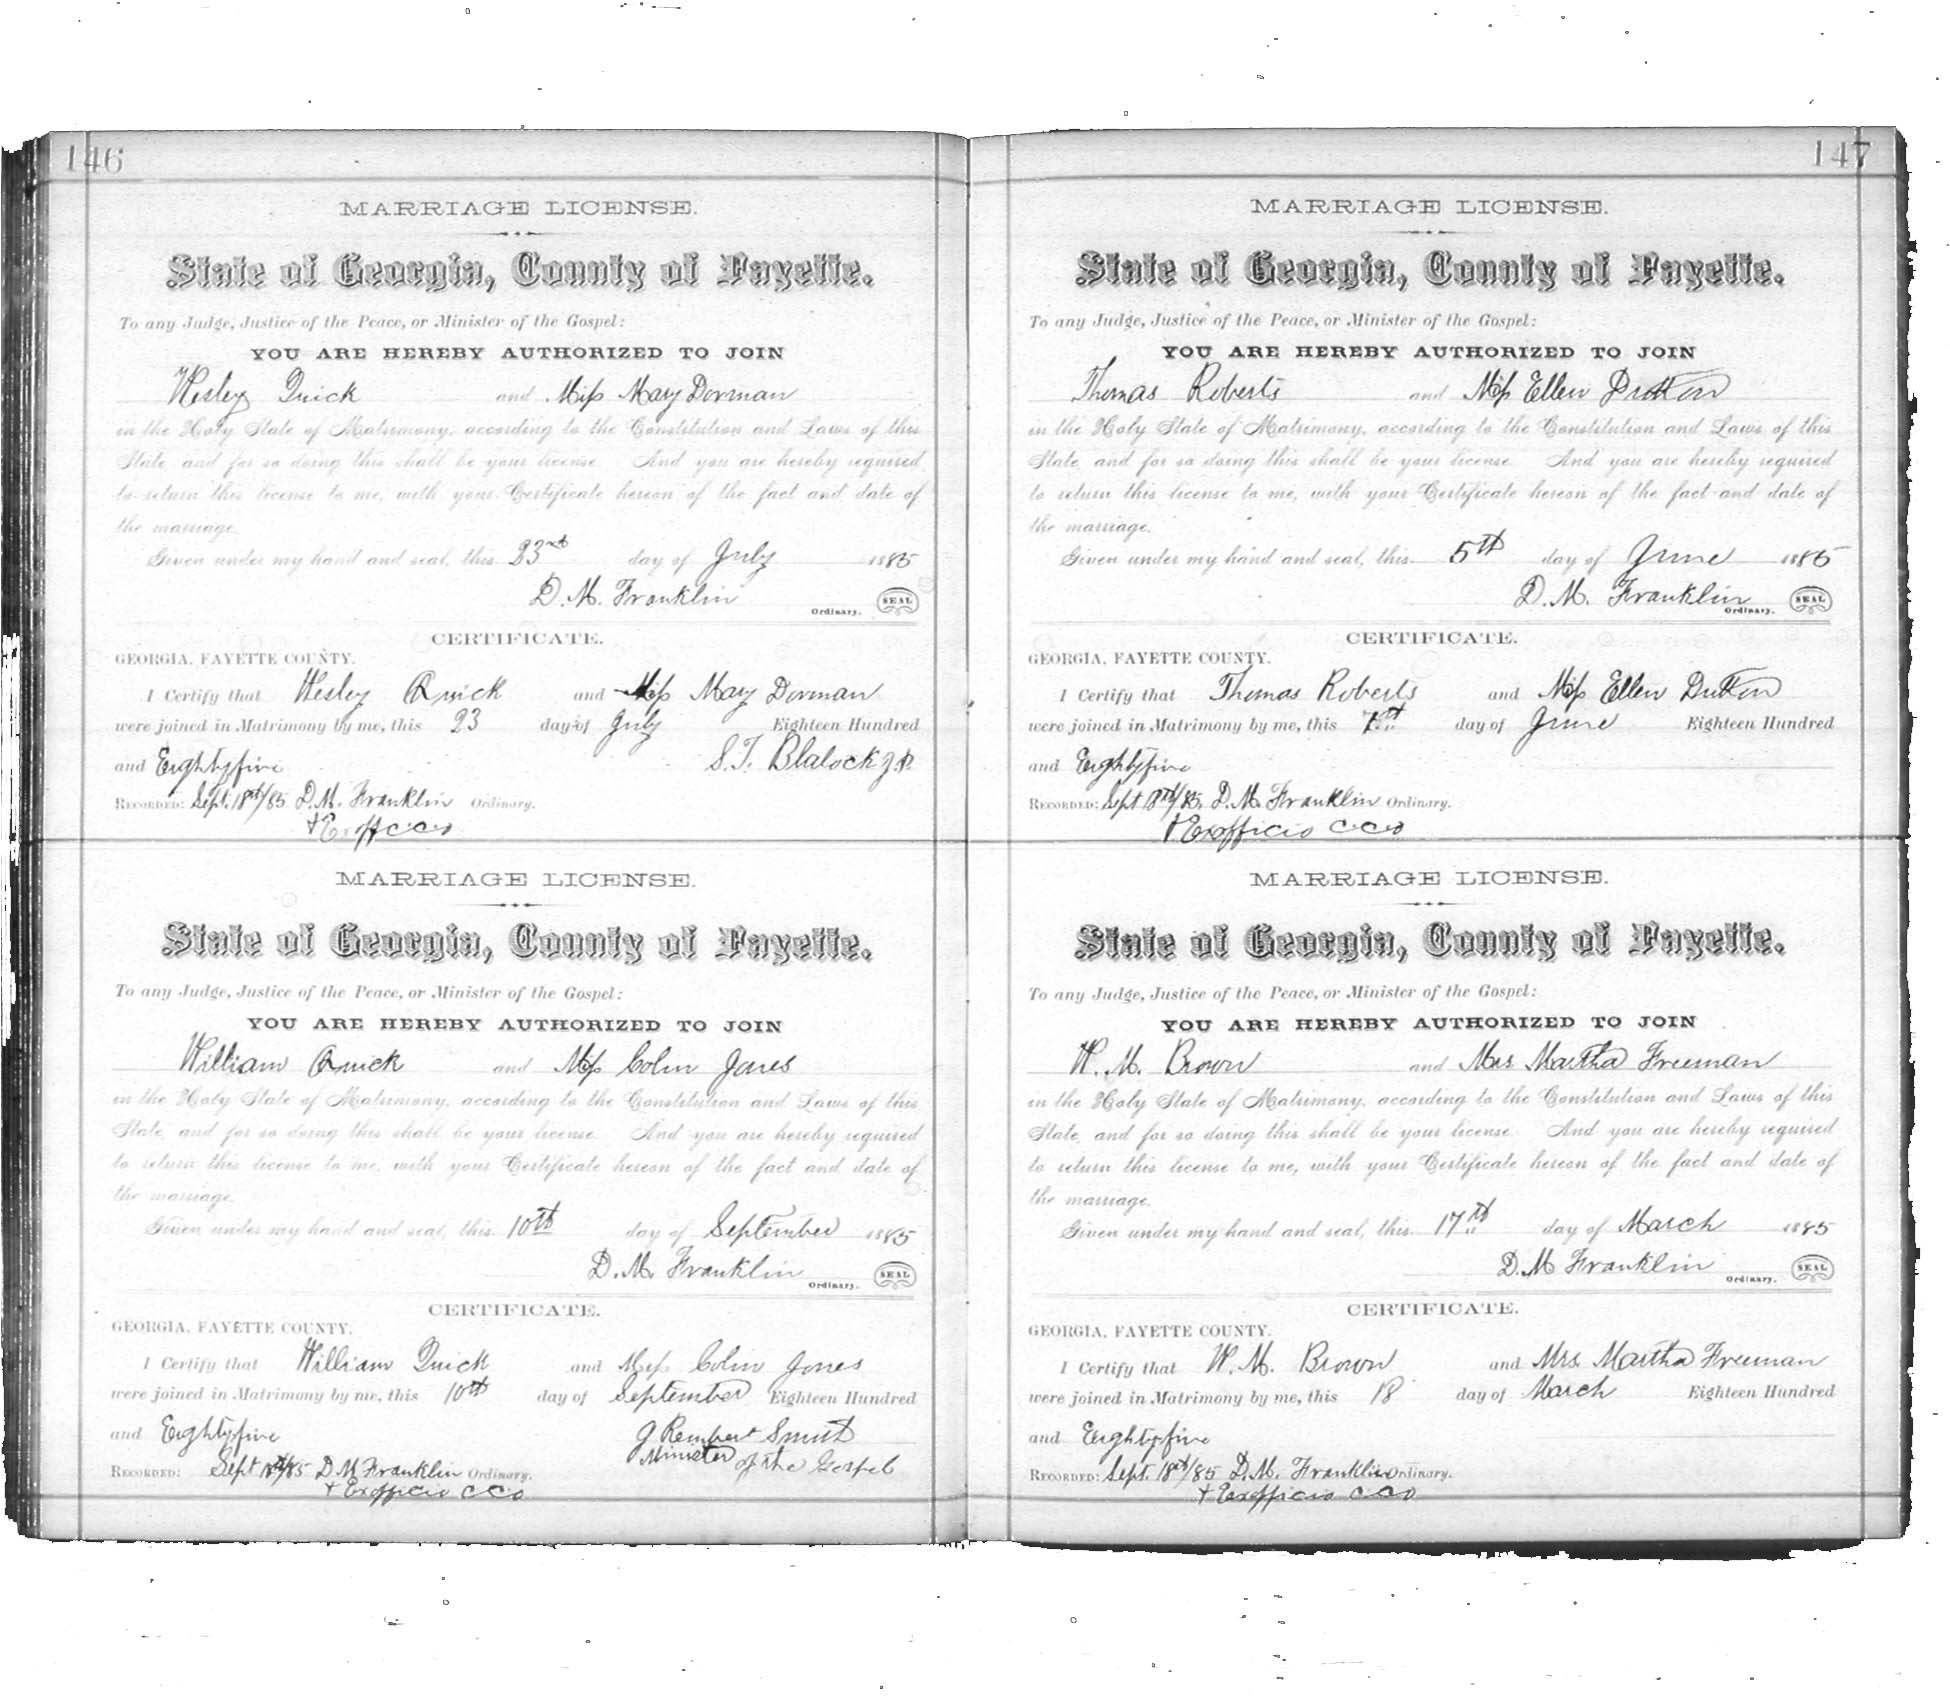 146
MARRIAGE LICENSE.
State of Georgia, County of Fayette.
To any Judge, Justice of the Peace, or Minister of the Gospel:
YOU ARE HEREBY AUTHORIZED TO JOIN
Wesley Quick and Miss Mary Dorman
in the Holy State of Matrimony, according to the Constitution and Laws of this
State, and for so doing this shall be your license. And you are hereby required
to return this license to me, with your Certificate hereon of the fact and date of
the marriage.
Given under my hand and seal, this 23rd day of July 1885
D. M. Franklin
Ordinary. SEAL
CERTIFICATE.
GEORGIA, FAYETTE COUNTY.
I Certify that Wesley Quick and Miss Mary Dorman
were joined in Matrimony by me, this 23 day of July Eighteen Hundred
and Eightyfive S. T. Blalock J.P.
RECORDED: Sept. 18th/85 D. M. Franklin Ordinary.
+ Exoff CCO
MARRIAGE LICENSE.
State of Georgia, County of Fayette.
To any Judge, Justice of the Peace, or Minister of the Gospel:
YOU ARE HEREBY AUTHORIZED TO JOIN
William Quick and Miss Colin Jones
in the Holy State of Matrimony, according to the Constitution and Laws of this
State, and for so doing this shall be your license. And you are hereby required
to return this license to me, with your Certificate hereon of the fact and date of
the marriage.
Given under my hand and seal, this 10th day of September 1885
D. M. Franklin
Ordinary. SEAL
CERTIFICATE.
GEORGIA, FAYETTE COUNTY.
I Certify that William Quick and Miss Colin Jones
were joined in Matrimony by me, this 10th day of September Eighteen Hundred
and Eightyfive J Rembert Smith
Minister of the Gospel
RECORDED: Sept 18th/85 D M Franklin Ordinary.
+ Exofficio CCO
147
MARRIAGE LICENSE.
State of Georgia, County of Fayette.
To any Judge, Justice of the Peace, or Minister of the Gospel:
YOU ARE HEREBY AUTHORIZED TO JOIN
Thomas Roberts and Miss Ellen Dutton
in the Holy State of Matrimony, according to the Constitution and Laws of this
State, and for so doing this shall be your license. And you are hereby required
to return this license to me, with your Certificate hereon of the fact and date of
the marriage.
Given under my hand and seal, this 5th day of June 1885
D. M. Franklin
Ordinary. SEAL
CERTIFICATE.
GEORGIA, FAYETTE COUNTY.
I Certify that Thomas Roberts and Miss Ellen Dutton
were joined in Matrimony by me, this 7th day of June Eighteen Hundred
and Eightyfive
RECORDED: Sept 18th/85, D. M. Franklin Ordinary.
+ Exofficio CCO
MARRIAGE LICENSE.
State of Georgia, County of Fayette.
To any Judge, Justice of the Peace, or Minister of the Gospel:
YOU ARE HEREBY AUTHORIZED TO JOIN
W. M. Brown and Mrs Martha Freeman
in the Holy State of Matrimony, according to the Constitution and Laws of this
State, and for so doing this shall be your license. And you are hereby required
to return this license to me, with your Certificate hereon of the fact and date of
the marriage.
Given under my hand and seal, this 17th day of March 1885
D. M Franklin
Ordinary. SEAL
CERTIFICATE.
GEORGIA, FAYETTE COUNTY.
I Certify that W. M. Brown and Mrs. Martha Freeman
were joined in Matrimony by me, this 18 day of March Eighteen Hundred
and Eightyfive
RECORDED: Sept. 18th/85 D. M. Franklin Ordinary.
+ Exofficio CCO